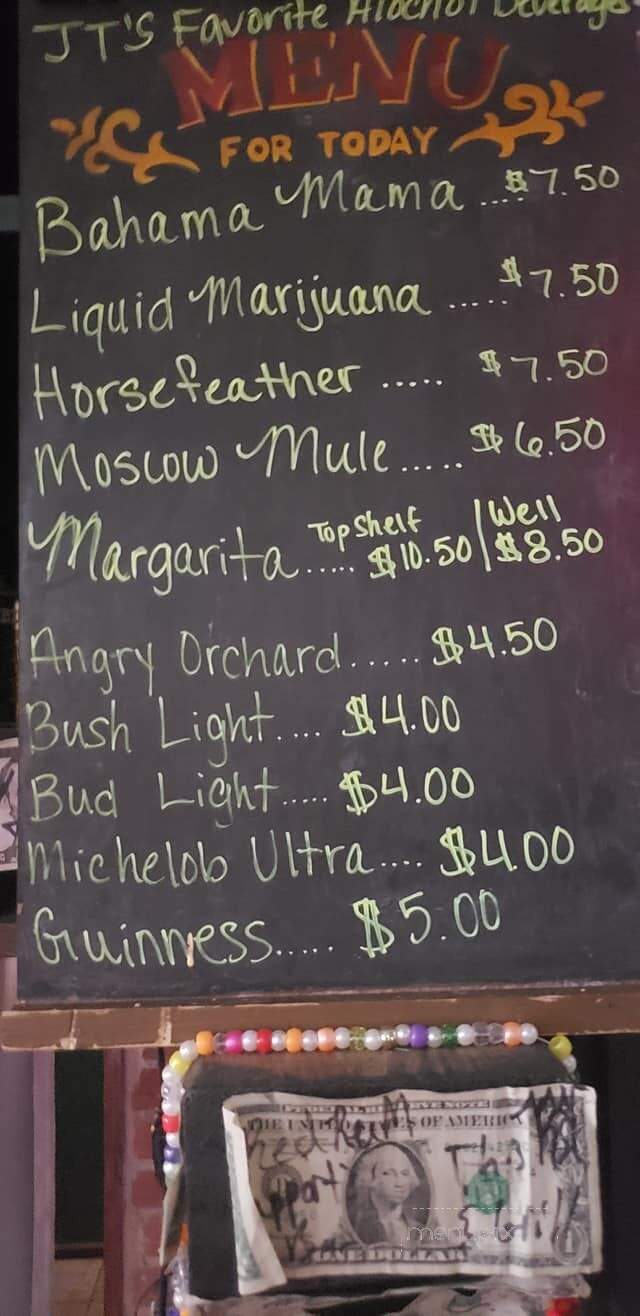 JT's Favorite Alochol Beverages
MENU
FOR TODAY
Bahama Mama ....$7.50
Liquid Marijuana .....$7.50
Horsefeather ..... $7.50
Moscow Mule.....$6.50
Margarita..... Top Shelf $10.50 | Well $8.50
Angry Orchard.....$4.50
Bush Light.... $4.00
Bud Light..... $4.00
Michelob Ultra.... $4.00
Guinness..... $5.00
FEDERAL RESERVE NOTE
THE UNITED STATES OF AMERICA
This
ONE DOLLAR
menupix